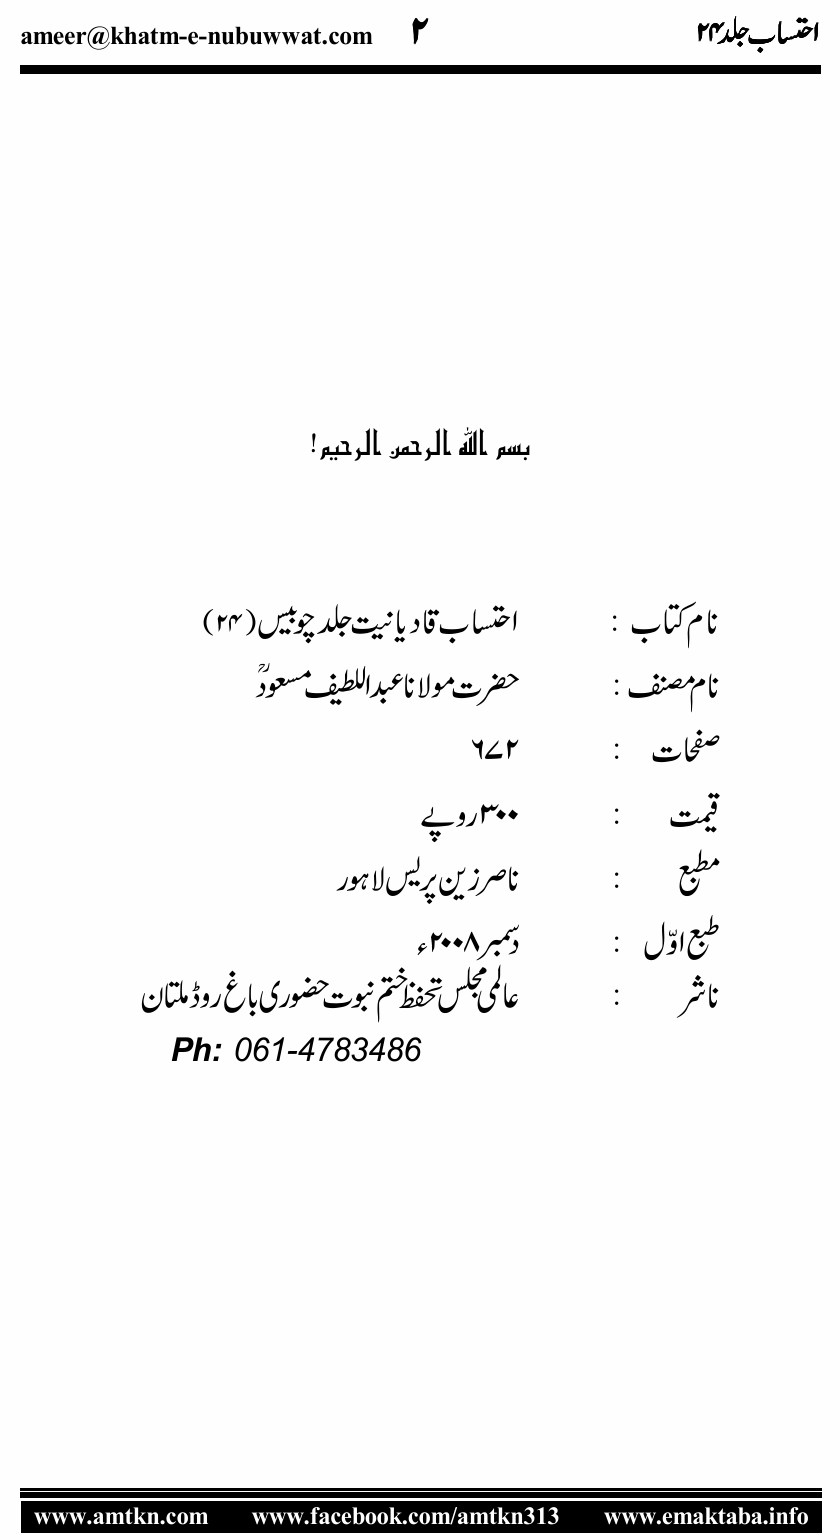 احتساب جلد۲۴ ۲ ameer@khatm-e-nubuwwat.com
بسم اللہ الرحمن الرحیم!
نام کتاب : احتساب قادیانیت جلد چوبیس (۲۴)
نام مصنف : حضرت مولانا عبداللطیف مسعودؒ
صفحات : ۶۷۲
قیمت : ۳۰۰ روپے
مطبع : ناصر زین پریس لاہور
طبع اوّل : دسمبر ۲۰۰۸ء
ناشر : عالمی مجلس تحفظ ختم نبوت حضوری باغ روڈ ملتان
Ph: 061-4783486
www.amtkn.com www.facebook.com/amtkn313 www.emaktaba.info